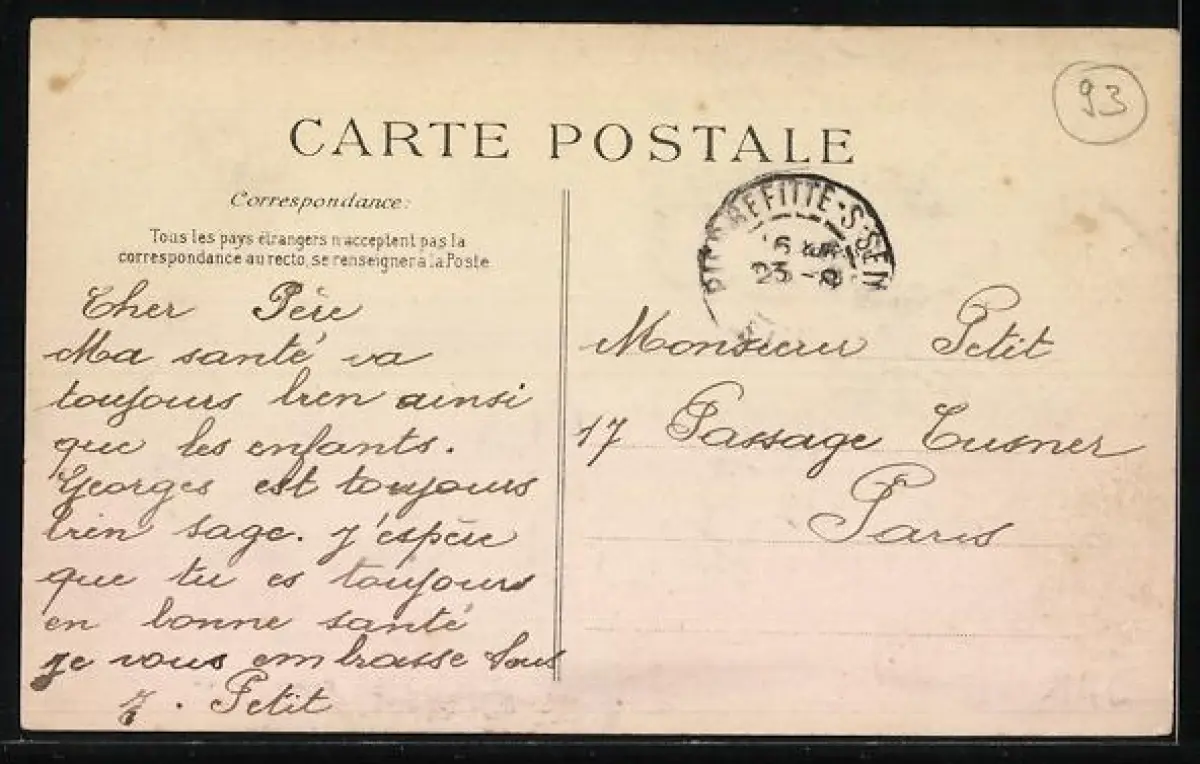 93
CARTE POSTALE
Correspondance:
Tous les pays étrangers n'acceptent pas la
correspondance au recto, se renseigner à la Poste
Cher Père
Ma santé va
toujours bien ainsi
que les enfants.
Georges est toujours
bien sage. J'espère
que tu es toujours
en bonne santé
je vous embrasse tous
Petit
PIERREFITTE-S-SEIN
23
Monsieur Petit
17 Passage
Paris